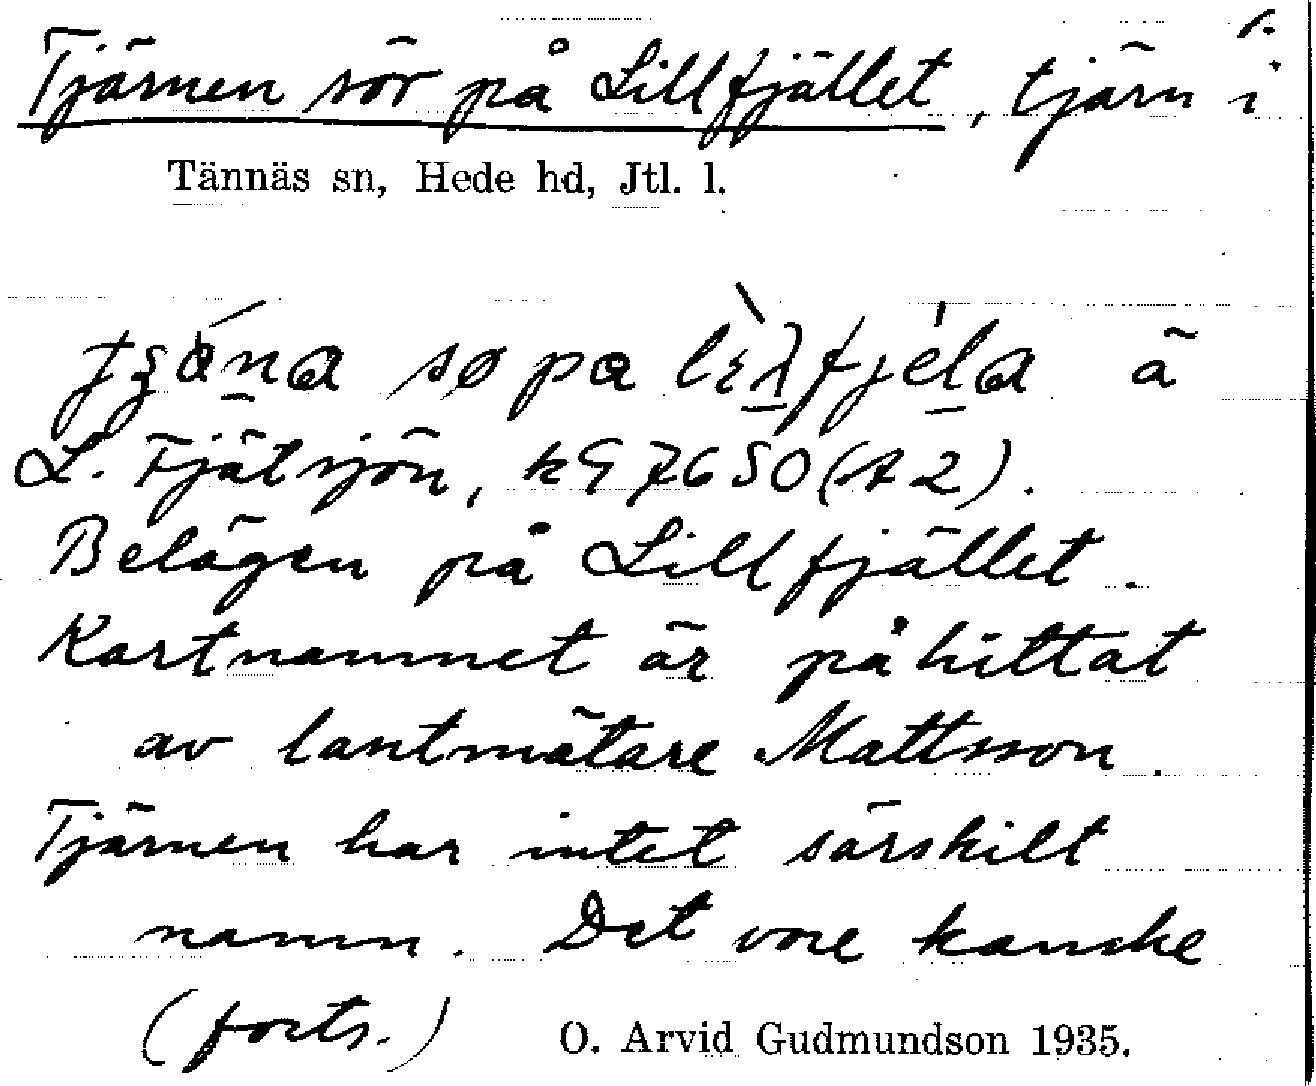 1.
Tjärnen sör på Lillfjället, tjärn i
Tännäs sn, Hede hd, Jtl. l.
sø pa ä
L. Fjätsjön, k97650(A2).
Belägen på Lillfjället.
Kartnamnet är påhittat
av lantmätare Mattsson.
Tjärnen har intet särskilt
namn. Det vore kanske
(forts.) O. Arvid Gudmundson 1935.